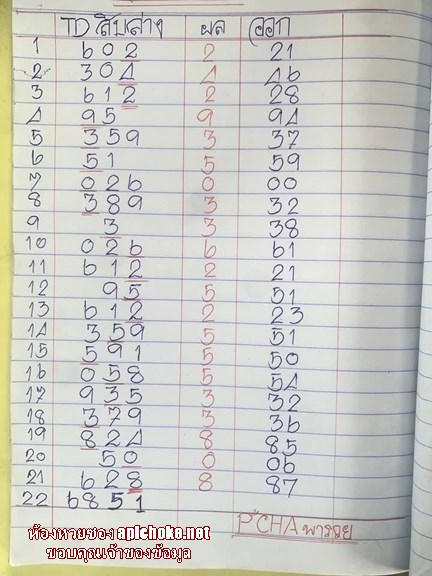 TD สิบล่าง ผล ออก
1 602 2 21
2 304 4 46
3 612 2 28
4 95 9 94
5 359 3 37
6 51 5 59
7 026 0 00
8 389 3 32
9 3 3 38
10 026 6 61
11 612 2 21
12 95 5 51
13 612 2 23
14 359 5 51
15 591 5 50
16 058 5 54
17 935 3 32
18 379 3 36
19 824 8 85
20 50 0 06
21 628 8 87
22 6851
P'CHA พารวย
ห้องหวยของ aplchoke.net
ขอบคุณเจ้าของข้อมูล